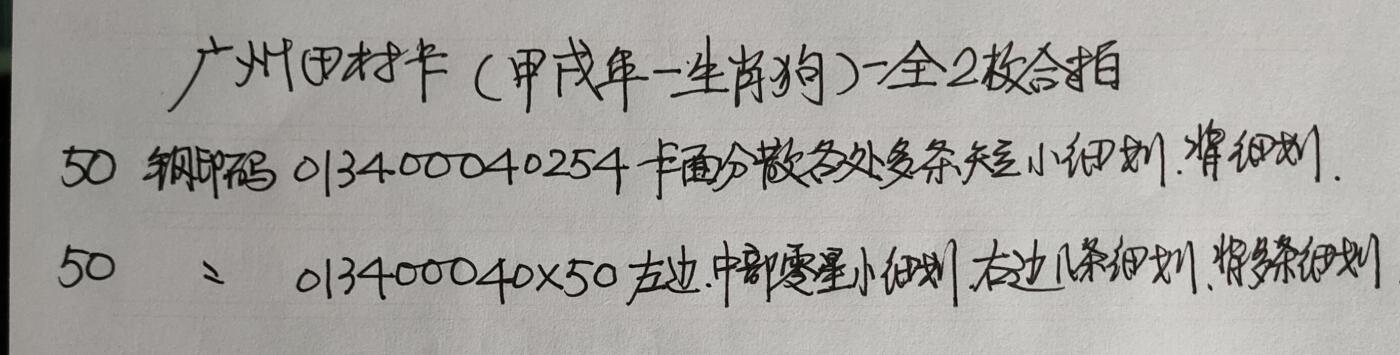 广州田村卡(甲戌年一生肖狗)-全2枚合拍
50 钢印码 013400040254 卡面分散各处多条短小细划.背细划.
50 〃 013400040X50 左边.中部零星小细划.右边几条细划.背多条细划